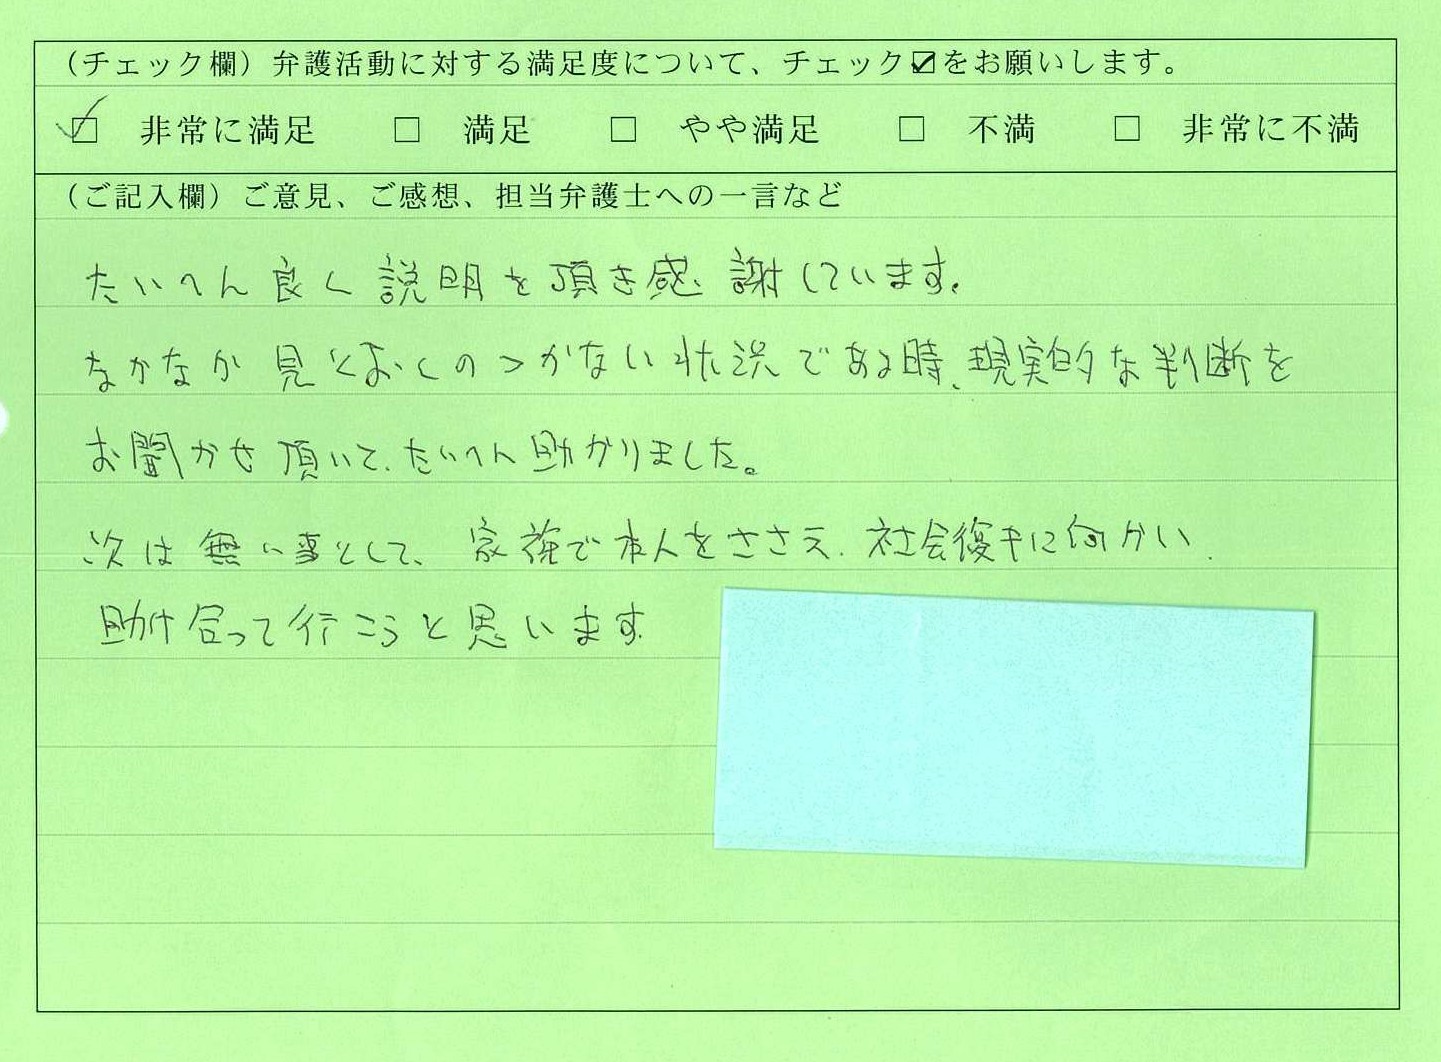 （チェック欄）弁護活動に対する満足度について、チェック☑をお願いします。
☑ 非常に満足 □ 満足 □ やや満足 □ 不満 □ 非常に不満
（ご記入欄）ご意見、ご感想、担当弁護士への一言など
たいへん良く説明を頂き感謝しています。
なかなか見くおくのつかない状況である時、現実的な判断を
お聞かせ頂いて、たいへん助かりました。
次は無い事として、家族で本人をささえ、社会復キに向かい、
助け合って行こうと思います